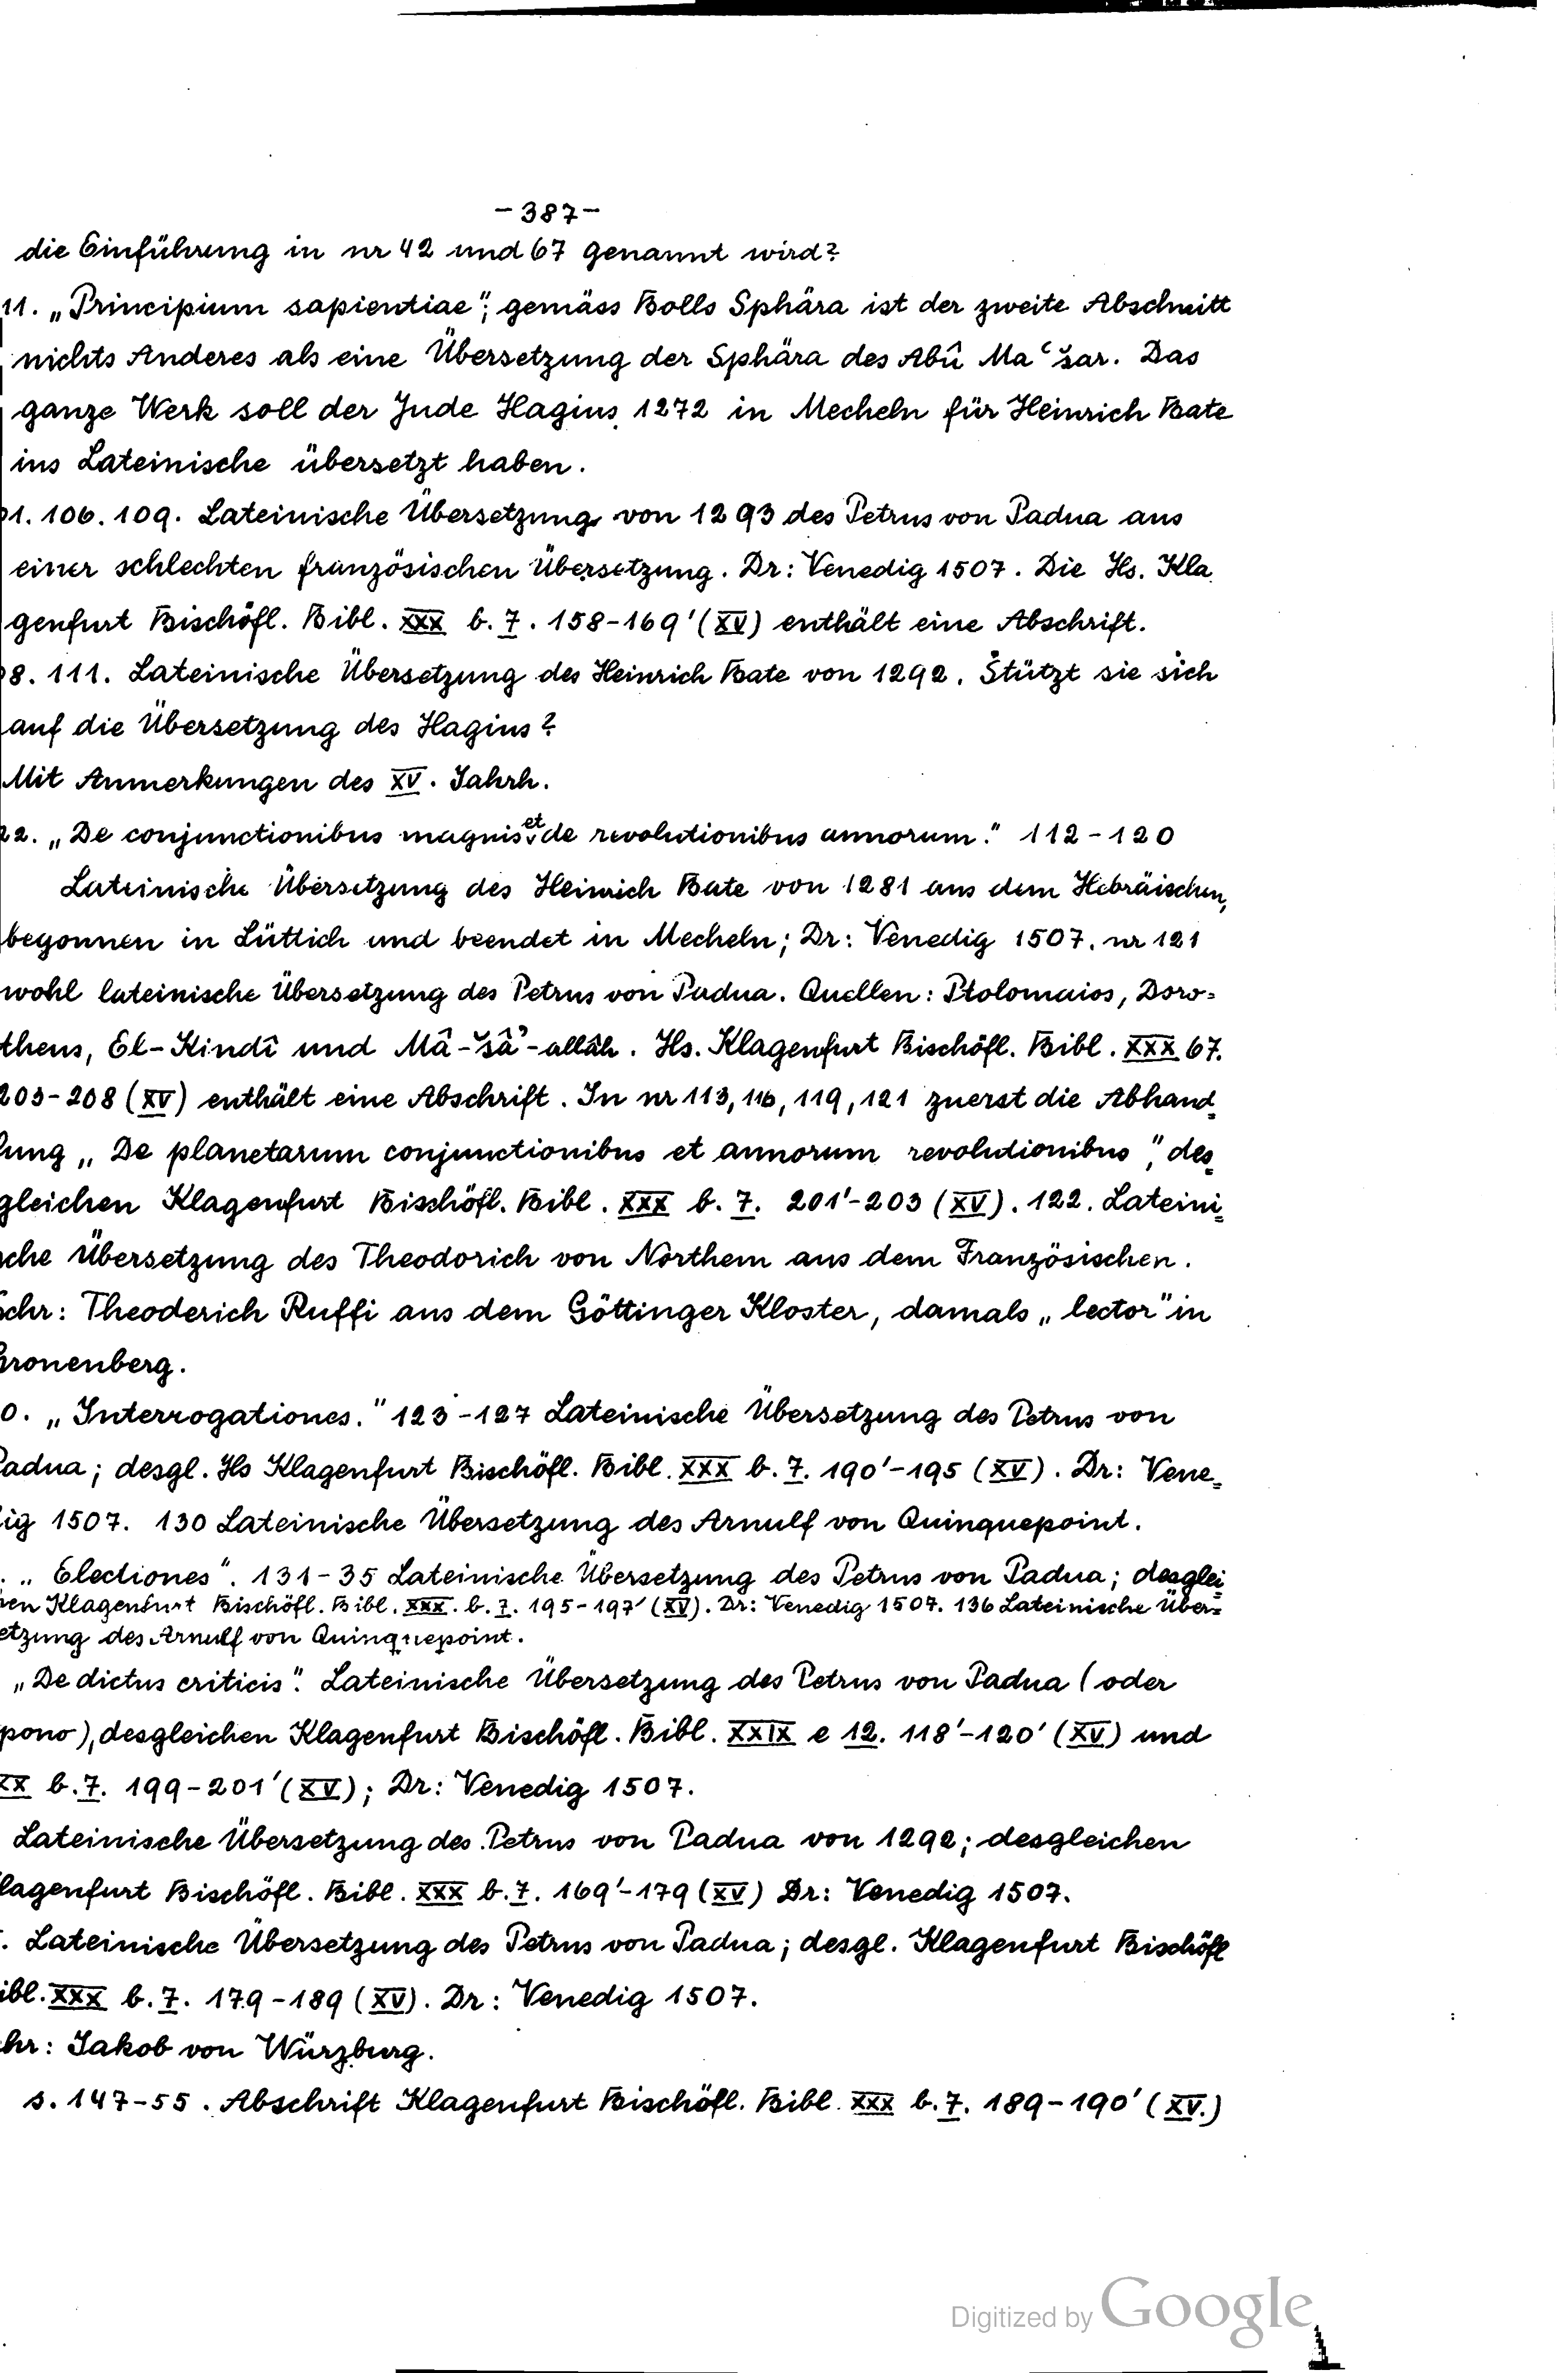 -387-
die Einführung in nr 42 und 67 genannt wird?
11. „Principium sapientiae"; gemäss Bolls Sphära ist der zweite Abschnitt
nichts Anderes als eine Übersetzung der Sphära des Abû Ma‘šar. Das
ganze Werk soll der Jude Hagins 1272 in Mecheln für Heinrich Bate
ins Lateinische übersetzt haben.
1. 106. 109. Lateinische Übersetzung von 1293 des Petrus von Padua aus
einer schlechten französischen Übersetzung. Dr: Venedig 1507. Die Hs. Kla
genfurt Bischöfl. Bibl. XXX b. 7. 158-169' (XV) enthält eine Abschrift.
8. 111. Lateinische Übersetzung des Heinrich Bate von 1292. Stützt sie sich
auf die Übersetzung des Hagins?
Mit Anmerkungen des XV. Jahrh.
22. „De conjunctionibus magnis et de revolutionibus annorum." 112-120
Lateinische Übersetzung des Heinrich Bate von 1281 aus dem Hebräischen,
begonnen in Lüttich und beendet in Mecheln; Dr: Venedig 1507. nr 121
wohl lateinische Übersetzung des Petrus von Padua. Quellen: Ptolomaios, Doro=
theus, El-Kindî und Mâ-šâ'-allâh. Hs. Klagenfurt Bischöfl. Bibl. XXX 67.
203-208 (XV) enthält eine Abschrift. In nr 113, 116, 119, 121 zuerst die Abhand=
lung „De planetarum conjunctionibus et annorum revolutionibus", des=
gleichen Klagenfurt Bischöfl. Bibl. XXX b. 7. 201'-203 (XV). 122. Lateini=
sche Übersetzung des Theodorich von Northem aus dem Französischen.
schr: Theoderich Ruffi aus dem Göttinger Kloster, damals „lector" in
Gronenberg.
0. „Interrogationes." 123-127 Lateinische Übersetzung des Petrus von
Padua; desgl. Hs Klagenfurt Bischöfl. Bibl. XXX b. 7. 190'-195 (XV). Dr: Vene=
dig 1507. 130 Lateinische Übersetzung des Arnulf von Quinquepoint.
. „Electiones". 131-35 Lateinische Übersetzung des Petrus von Padua; desglei=
hen Klagenfurt Bischöfl. Bibl. XXX. b. 7. 195-197' (XV). Dr: Venedig 1507. 136 Lateinische Über=
etzung des Arnulf von Quinquepoint.
„De dictus criticis". Lateinische Übersetzung des Petrus von Padua (oder
pono), desgleichen Klagenfurt Bischöfl. Bibl. XXIX e 12. 118'-120' (XV) und
XX b. 7. 199-201' (XV); Dr: Venedig 1507.
Lateinische Übersetzung des Petrus von Padua von 1292; desgleichen
lagenfurt Bischöfl. Bibl. XXX b. 7. 169'-179 (XV) Dr: Venedig 1507.
. Lateinische Übersetzung des Petrus von Padua; desgl. Klagenfurt Bischöfl
ibl. XXX b. 7. 179-189 (XV). Dr: Venedig 1507.
hr: Jakob von Würzburg.
s. 147-55. Abschrift Klagenfurt Bischöfl. Bibl. XXX b. 7. 189-190' (XV.)
Digitized by Google